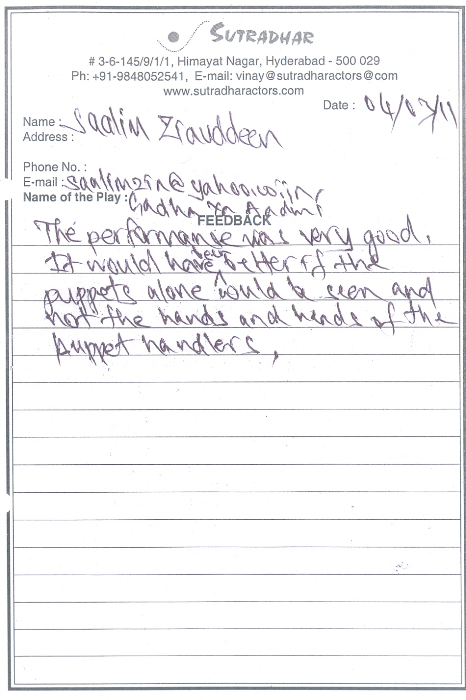 SUTRADHAR
# 3-6-145/9/1/1, Himayat Nagar, Hyderabad - 500 029
Ph: +91-9848052541, E-mail: vinay@sutradharactors@com
www.sutradharactors.com
Date : 04/07/11
Name : Saalim Ziauddeen
Address :
Phone No. :
E-mail : saalimzin@yahoo.co.in
Name of the Play : Gadha Ya Aadmi
FEEDBACK
The performance was very good.
It would have been better if the
puppets alone could be seen and
not the hands and heads of the
puppet handlers.